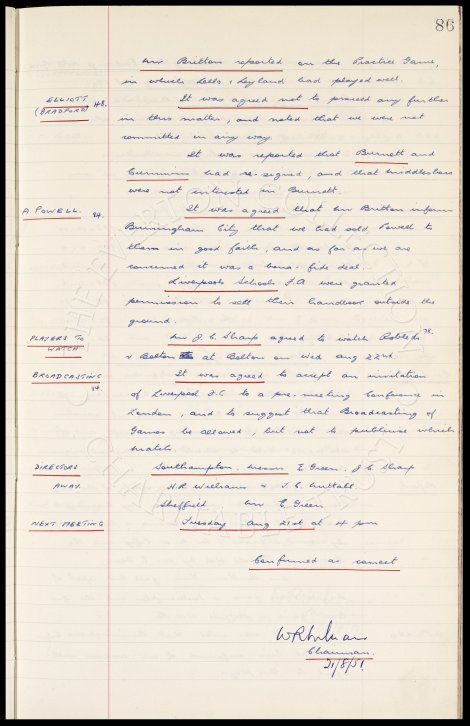 86
Mr Britton reported on the Practice Game,
in which Lello & Leyland had played well.
ELLIOTT 48. It was agreed not to proceed any further
(BRADFORD)
in this matter, and noted that we were not
committed in any way.
It was reported that Burnett and
Cummins had re-signed, and that Middlesboro
were not interested in Burnett.
A. POWELL. 84. It was agreed that Mr Britton inform
Birmingham City that we had sold Powell to
them in good faith, and as far as we are
concerned it was a bona-fide deal.
Liverpool Schools F.A were granted
permission to sell their handbook outside the
ground.
PLAYERS TO Mr J. C. Sharp agreed to watch Robledo 78.
WATCH & Bolton at Bolton on Wed Aug 22nd.
BROADCASTING It was agreed to accept an invitation
14. of Liverpool F.C to a pre-meeting Conference in
London, and to suggest that Broadcasting of
Games be allowed, but not to publicise which
match.
DIRECTORS Southampton. Messrs E. Green. J. C. Sharp
AWAY. W.R Williams & J. C. Nuttall
Sheffield Mr E. Green
NEXT MEETING Tuesday Aug 21st at 4 pm
Confirmed as correct
WR Williams
Chairman.
21/8/51
THE EVERTON COLLECTION
CHARITABLE TRUST